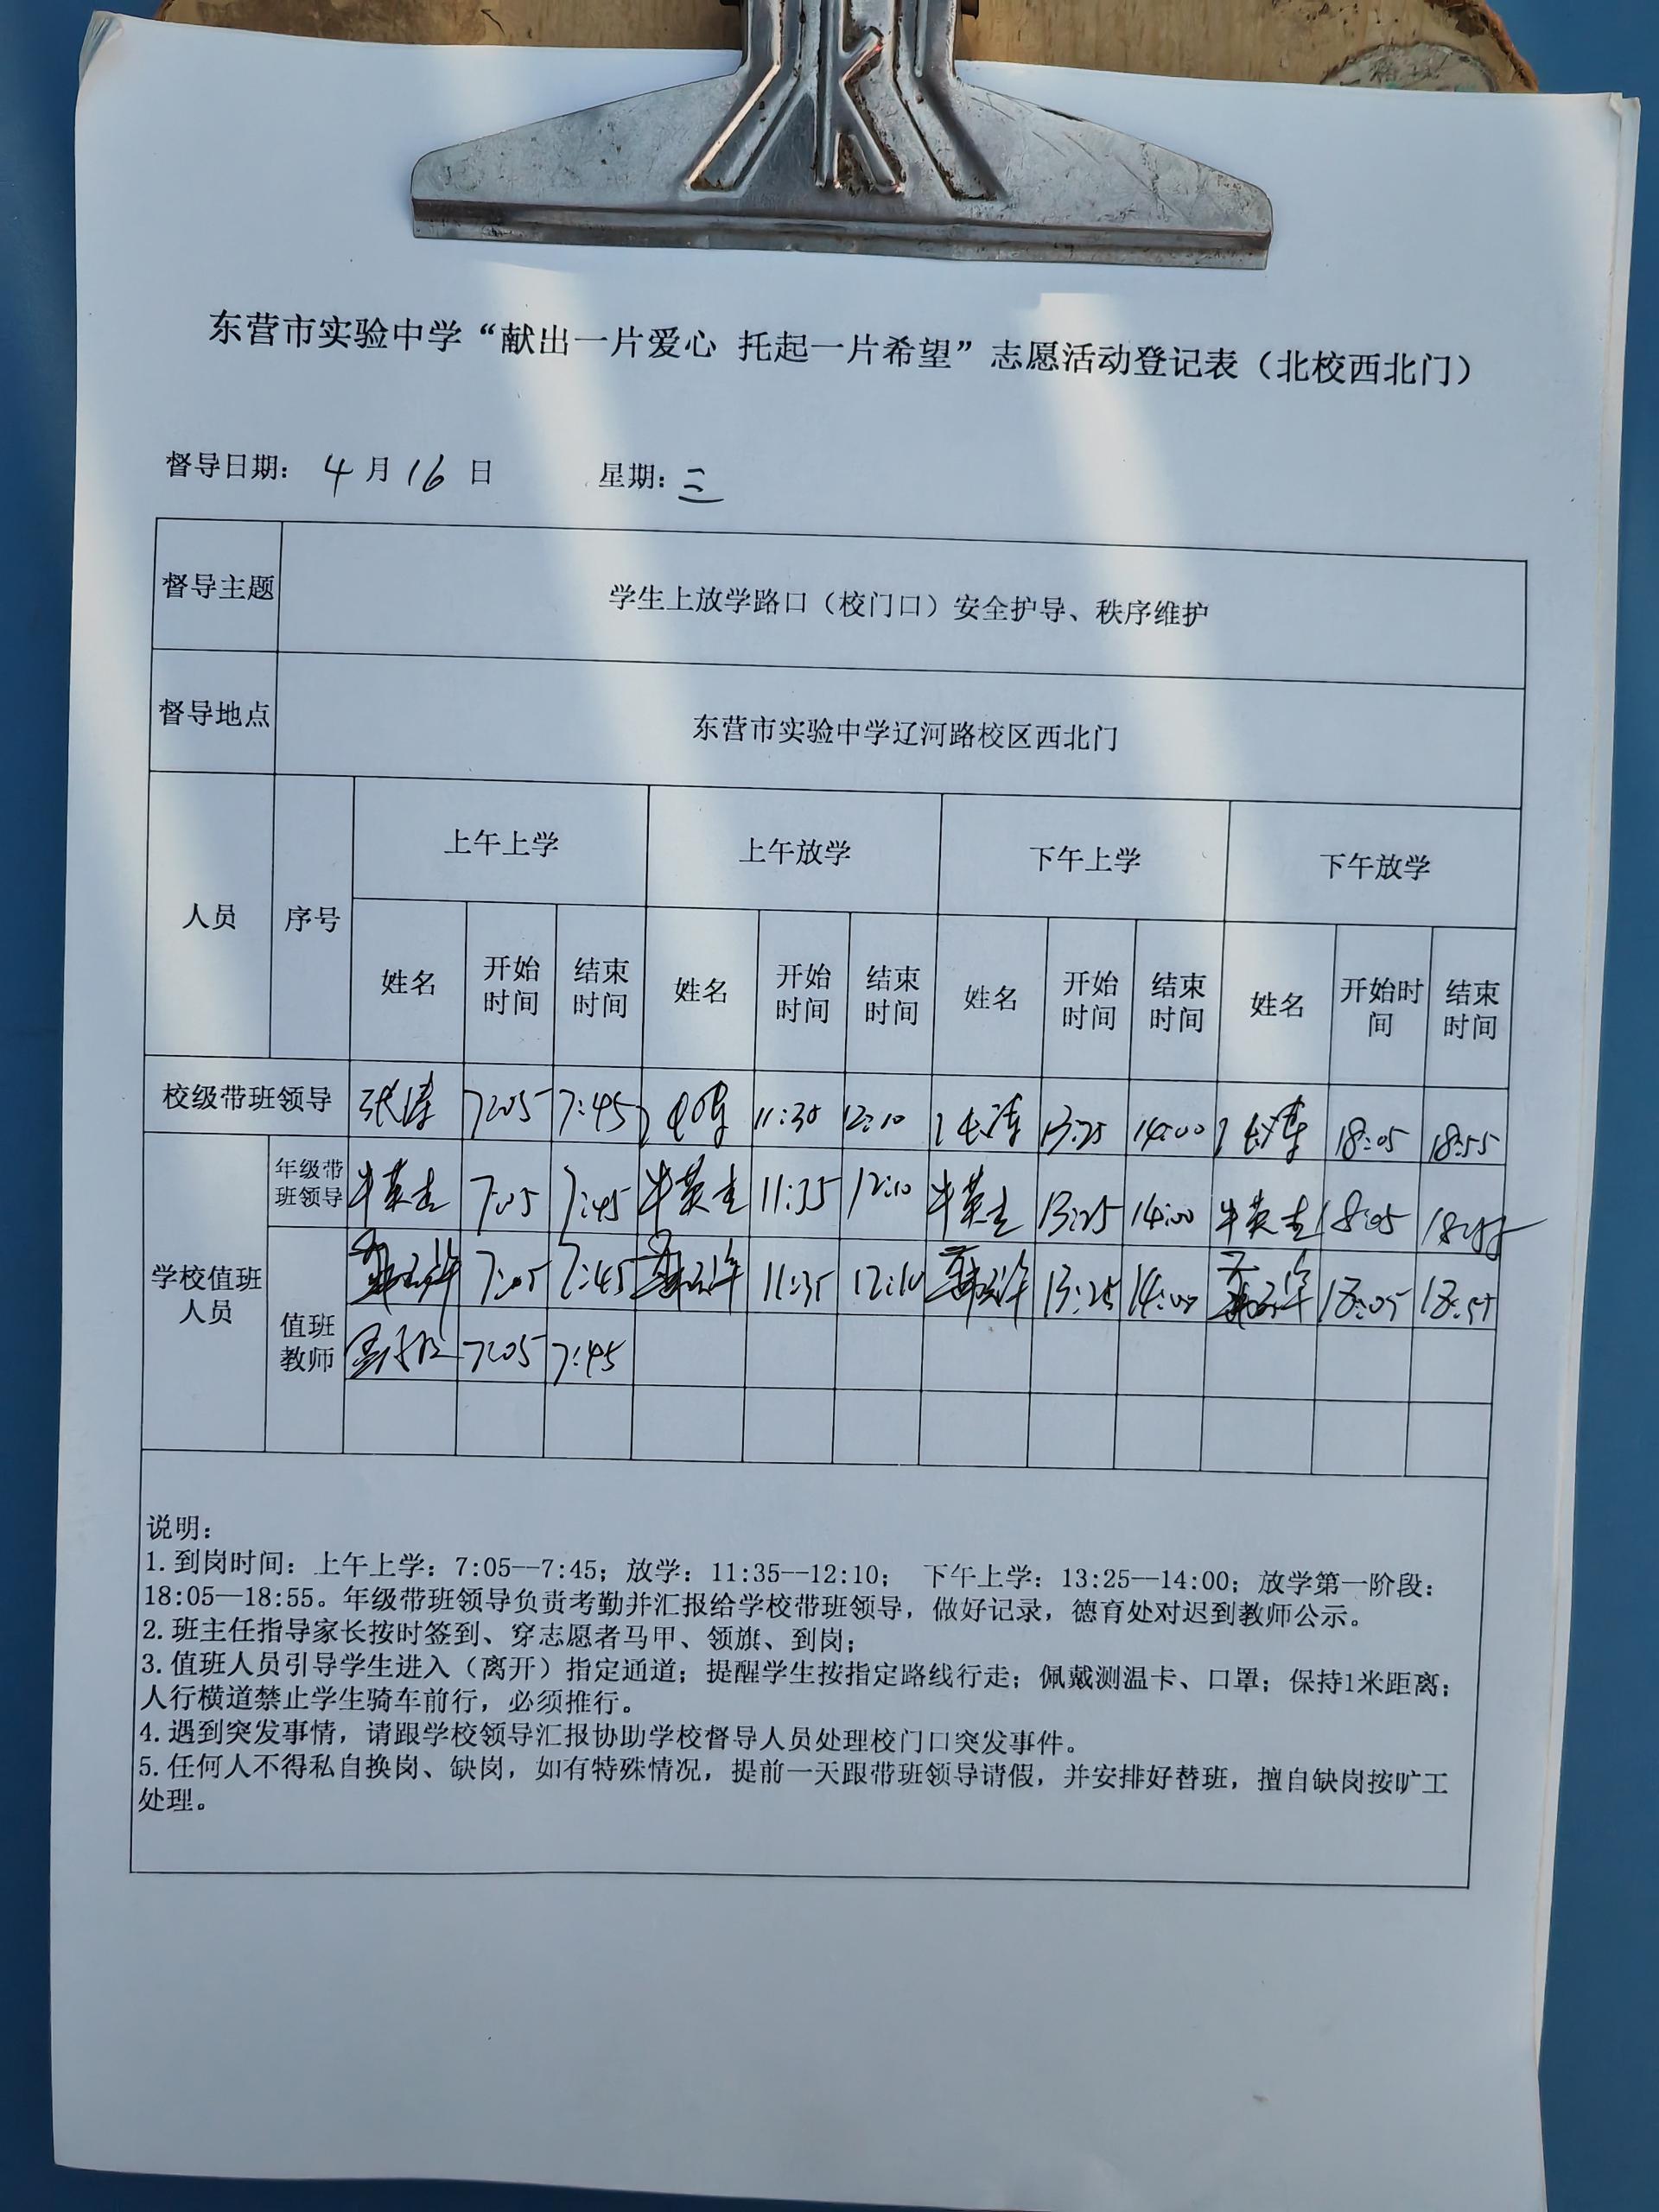 东营市实验中学“献出一片爱心 托起一片希望”志愿活动登记表（北校西北门）
督导日期： 4 月 16 日 星期：三
督导主题 学生上放学路口（校门口）安全护导、秩序维护
督导地点 东营市实验中学辽河路校区西北门
人员 序号 上午上学 上午放学 下午上学 下午放学
姓名 开始时间 结束时间 姓名 开始时间 结束时间 姓名 开始时间 结束时间 姓名 开始时间 结束时间
校级带班领导 张涛 7:05 7:45 11:30 12:10 张涛 13:25 14:00 张涛 18:05 18:55
学校值班人员
年级带班领导 牛英杰 7:05 7:45 牛英杰 11:35 12:10 牛英杰 13:25 14:00 牛英杰 18:05 18:55
值班教师 7:05 7:45 11:35 12:10 13:25 14:00 18:05 18:55
7:05 7:45
说明：
1.到岗时间：上午上学：7:05--7:45；放学：11:35--12:10； 下午上学：13:25—14:00；放学第一阶段：
18:05—18:55。年级带班领导负责考勤并汇报给学校带班领导，做好记录，德育处对迟到教师公示。
2.班主任指导家长按时签到、穿志愿者马甲、领旗、到岗；
3.值班人员引导学生进入（离开）指定通道；提醒学生按指定路线行走；佩戴测温卡、口罩；保持1米距离；
人行横道禁止学生骑车前行，必须推行。
4.遇到突发事情，请跟学校领导汇报协助学校督导人员处理校门口突发事件。
5.任何人不得私自换岗、缺岗，如有特殊情况，提前一天跟带班领导请假，并安排好替班，擅自缺岗按旷工
处理。